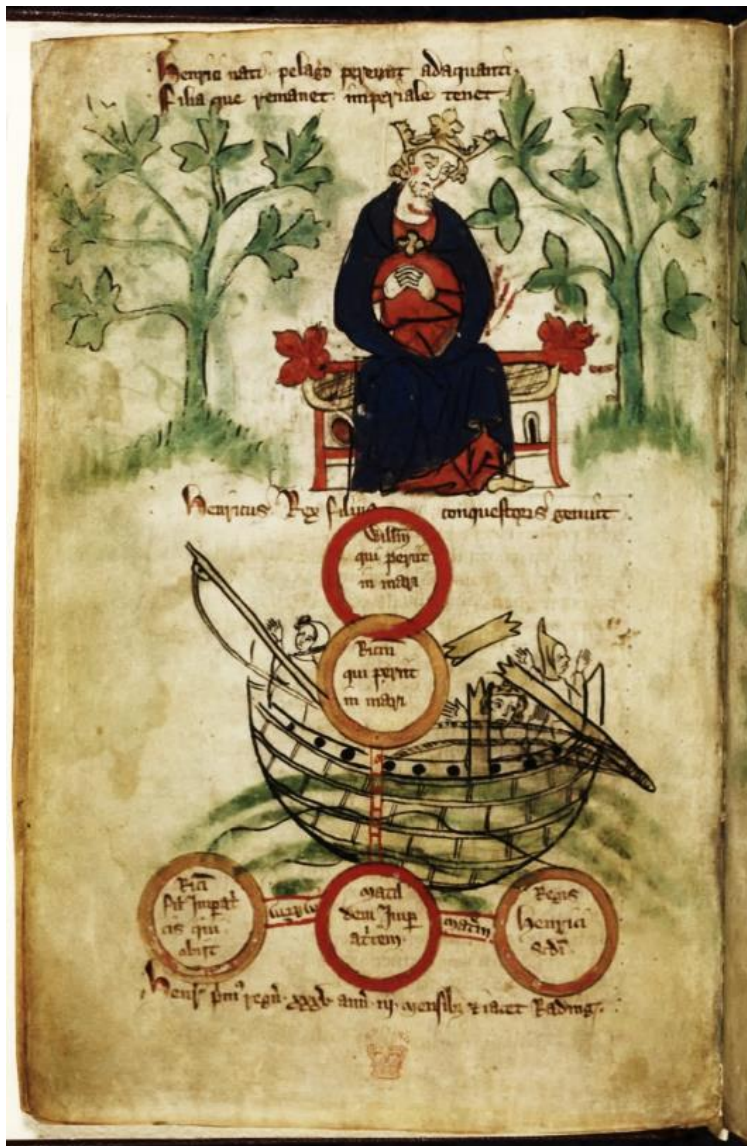 Henrici nati pelago perierunt adaquanti
Filia que remanet imperiale tenet
Henricus Rex filius conquestoris genuit
Willm
qui periit
in mari
Ricm
qui periit
in mari
Rici
cis qui
obiit
Matil
dem Imp
atcem
matrem
Regis
Henrici
Secdi
Henr pm regn xxxv ann iii mensib & iacet Rading